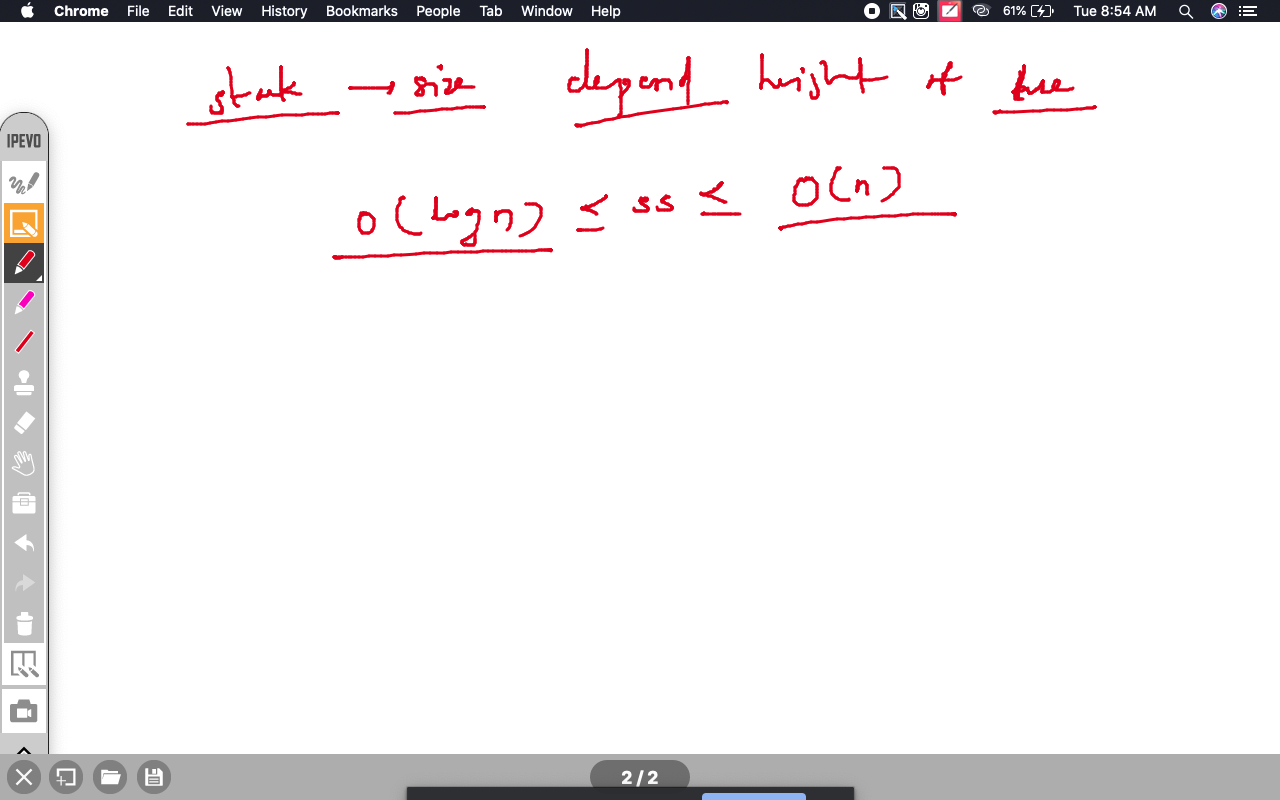 Chrome File Edit View History Bookmarks People Tab Window Help 61% Tue 8:54 AM
stack → size depend height of tree
O(log n) ≤ ss ≤ O(n)
IPEVO
2 / 2